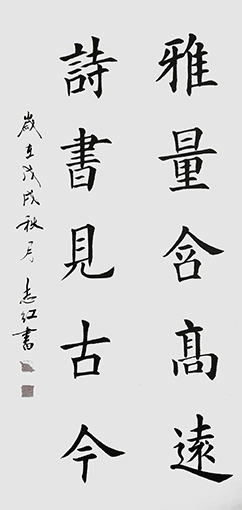 雅量含高遠
詩書見古今
歲在戊戌秋月 志紅書